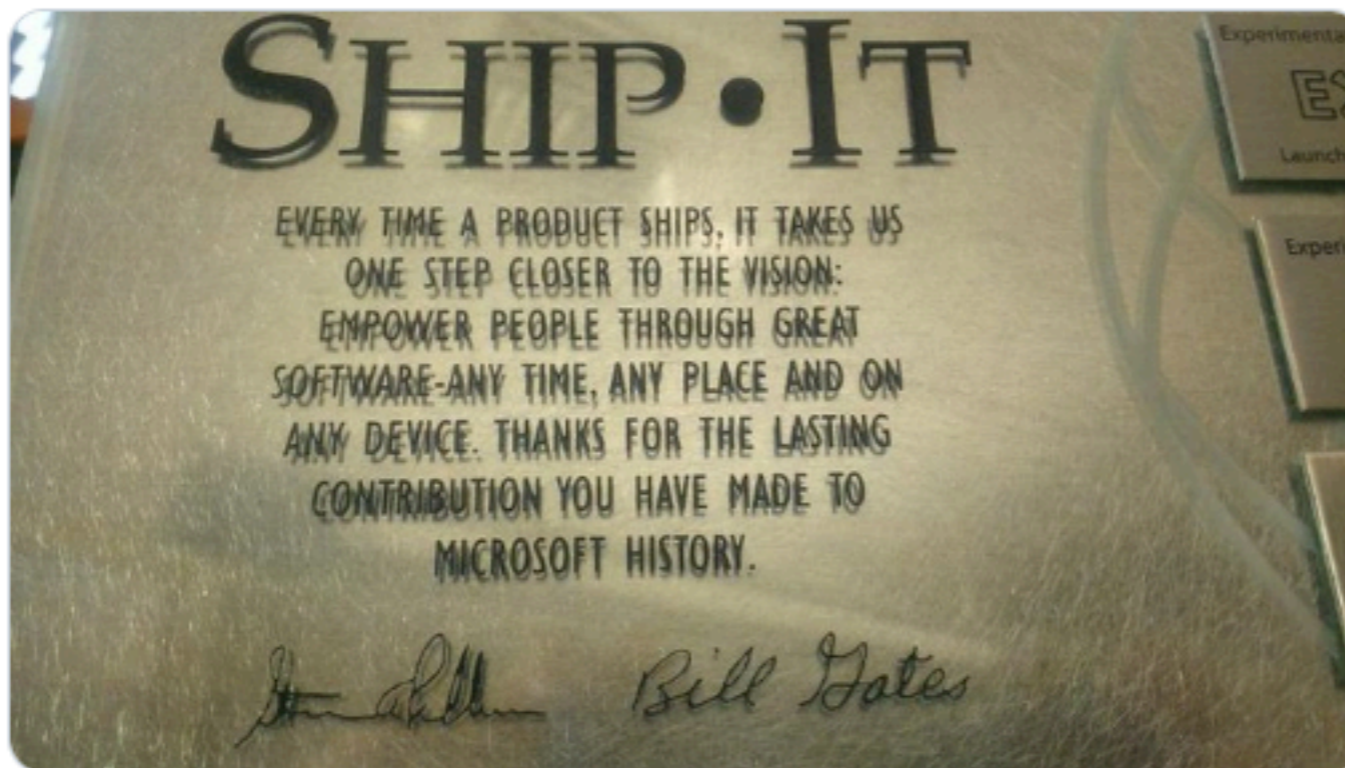 SHIP•IT
EVERY TIME A PRODUCT SHIPS, IT TAKES US
ONE STEP CLOSER TO THE VISION:
EMPOWER PEOPLE THROUGH GREAT
SOFTWARE-ANY TIME, ANY PLACE AND ON
ANY DEVICE. THANKS FOR THE LASTING
CONTRIBUTION YOU HAVE MADE TO
MICROSOFT HISTORY.
Bill Gates
Experimenta
EX
Launch
Experi